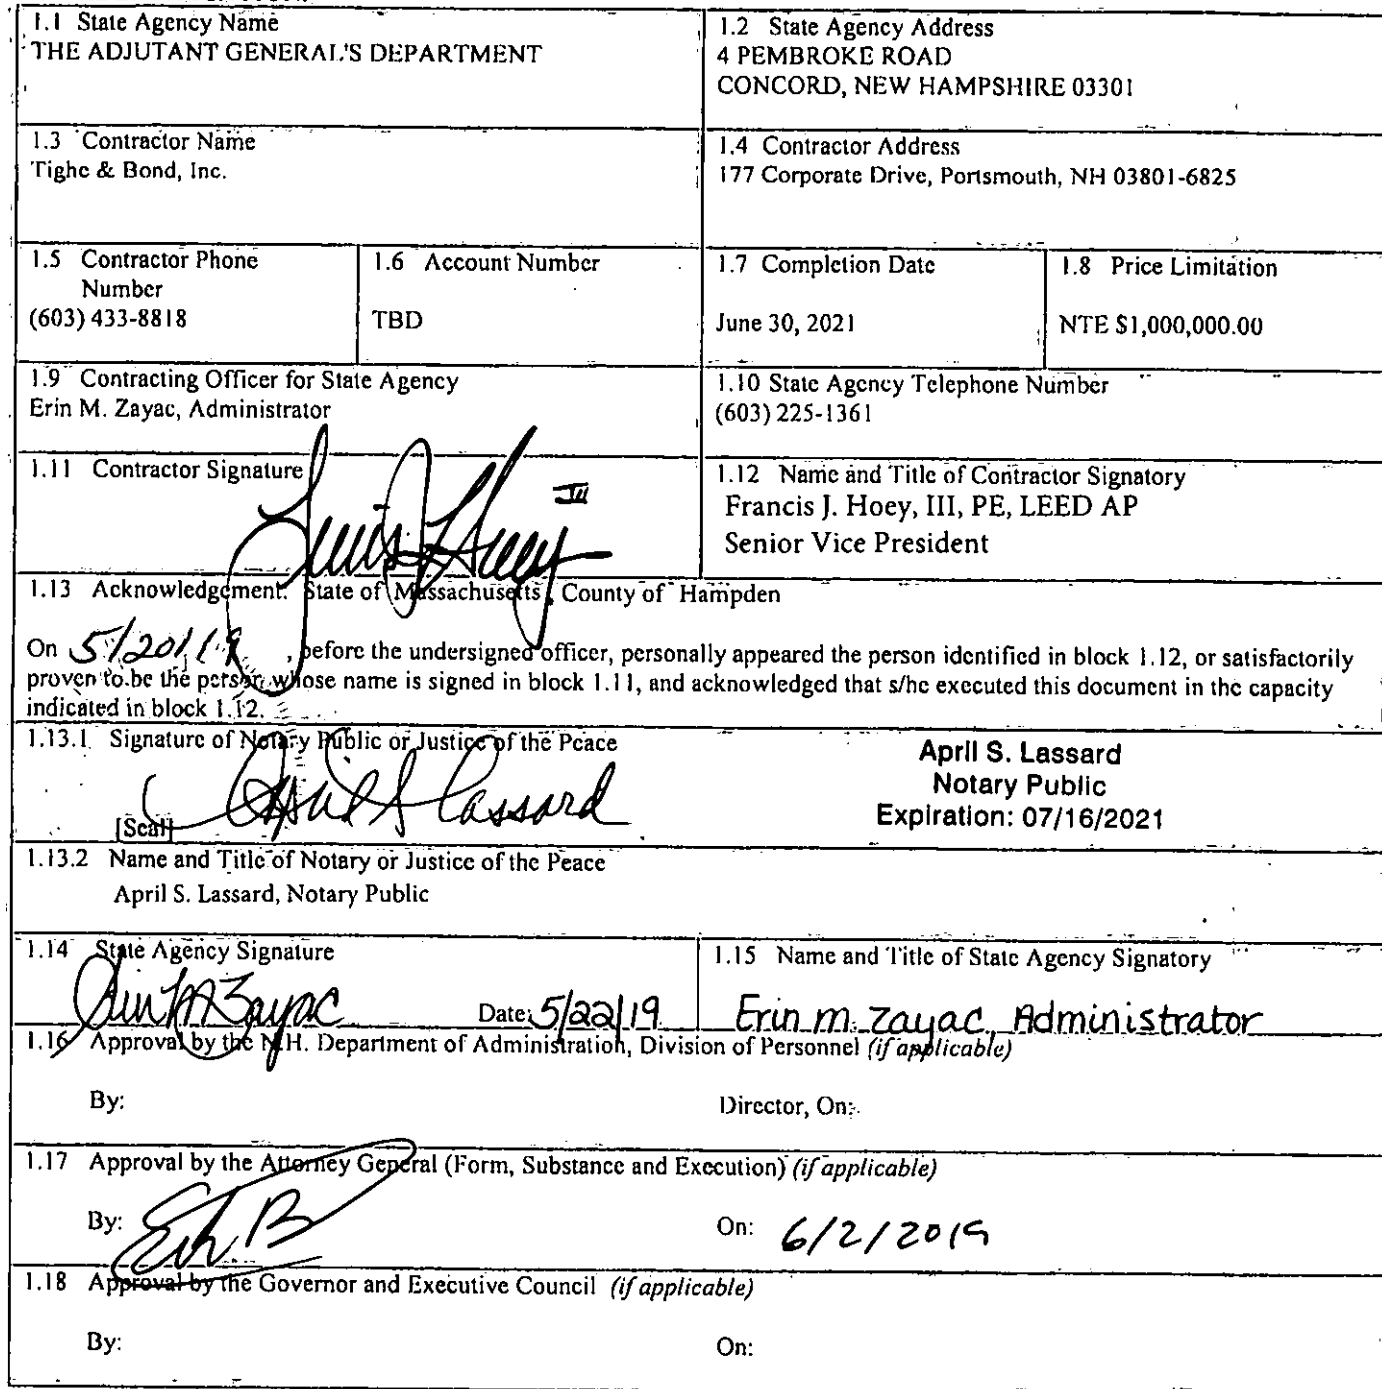 1.1 State Agency Name
THE ADJUTANT GENERAL'S DEPARTMENT
1.2 State Agency Address
4 PEMBROKE ROAD
CONCORD, NEW HAMPSHIRE 03301
1.3 Contractor Name
Tighe & Bond, Inc.
1.4 Contractor Address
177 Corporate Drive, Portsmouth, NH 03801-6825
1.5 Contractor Phone
Number
(603) 433-8818
1.6 Account Number
TBD
1.7 Completion Date
June 30, 2021
1.8 Price Limitation
NTE $1,000,000.00
1.9 Contracting Officer for State Agency
Erin M. Zayac, Administrator
1.10 State Agency Telephone Number
(603) 225-1361
1.11 Contractor Signature
III
1.12 Name and Title of Contractor Signatory
Francis J. Hoey, III, PE, LEED AP
Senior Vice President
1.13 Acknowledgement: State of Massachusetts, County of Hampden
On 5/20/19, before the undersigned officer, personally appeared the person identified in block 1.12, or satisfactorily
proven to be the person whose name is signed in block 1.11, and acknowledged that s/he executed this document in the capacity
indicated in block 1.12.
1.13.1 Signature of Notary Public or Justice of the Peace
April S Lassard
[Seal]
April S. Lassard
Notary Public
Expiration: 07/16/2021
1.13.2 Name and Title of Notary or Justice of the Peace
April S. Lassard, Notary Public
1.14 State Agency Signature
Erin M Zayac Date: 5/22/19
1.15 Name and Title of State Agency Signatory
Erin M. Zayac, Administrator
1.16 Approval by the N.H. Department of Administration, Division of Personnel (if applicable)
By: Director, On:
1.17 Approval by the Attorney General (Form, Substance and Execution) (if applicable)
By: On: 6/2/2019
1.18 Approval by the Governor and Executive Council (if applicable)
By: On: